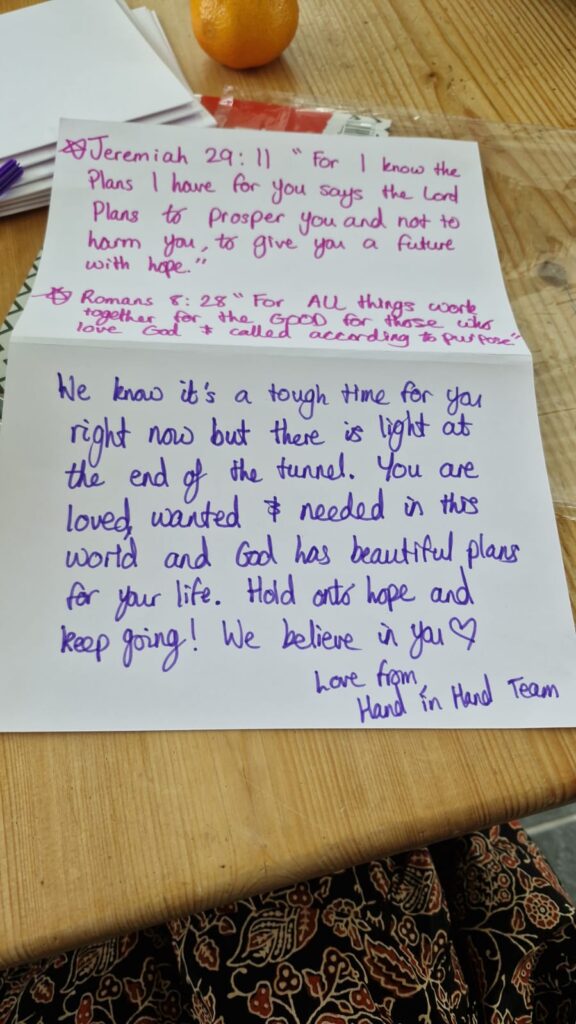 Jeremiah 29:11 "For I know the
Plans I have for you says the Lord
Plans to prosper you and not to
harm you, to give you a future
with hope."
Romans 8:28 "For ALL things work
together for the GOOD for those who
love God & called according to purpose"
We know it's a tough time for you
right now but there is light at
the end of the tunnel. You are
loved, wanted & needed in this
world and God has beautiful plans
for your life. Hold onto hope and
keep going! We believe in you♡
Love from,
Hand in Hand Team